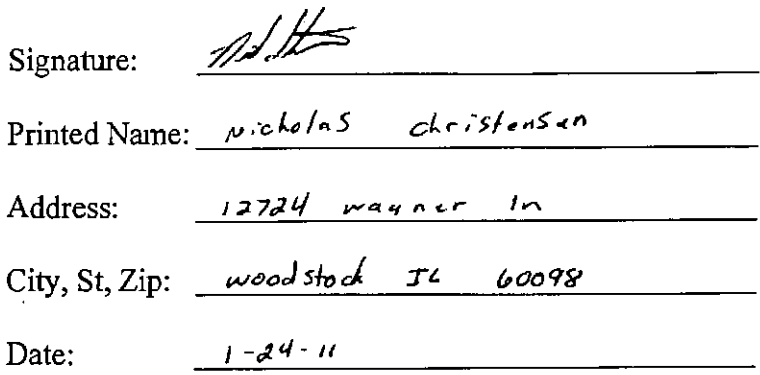 Signature:
Printed Name: Nicholas Christensen
Address: 12724 wagner ln
City, St, Zip: woodstock IL 60098
Date: 1-24-11